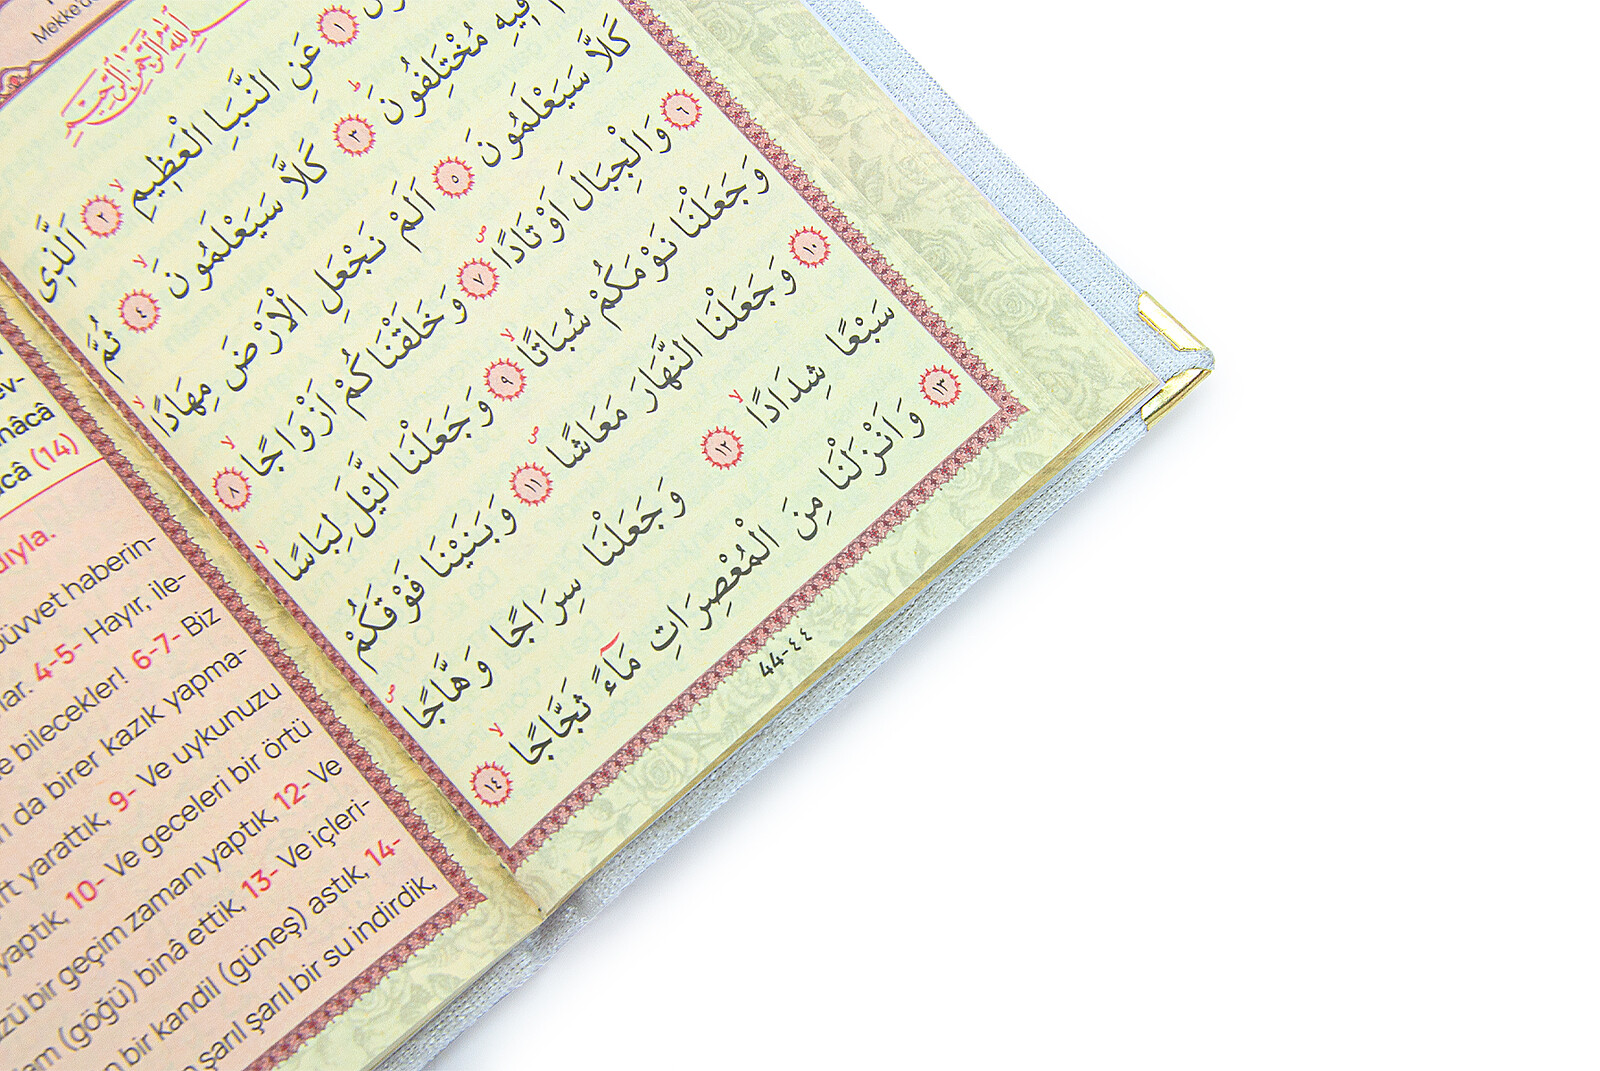 Mekke'de
بِسْمِ اللّٰهِ الرَّحْمٰنِ الرَّحِيمِ
١ عَنِ النَّبَاِ الْعَظِيمِۙ ٢ اَلَّذِى
فِيهِ مُخْتَلِفُونَۜ ٣ كَلَّا سَيَعْلَمُونَۙ ٤ ثُمَّ
كَلَّا سَيَعْلَمُونَ ٥ اَلَمْ نَجْعَلِ الْاَرْضَ مِهَادًاۙ
٦ وَالْجِبَالَ اَوْتَادًاۖ ٧ وَخَلَقْنَاكُمْ اَزْوَاجًاۙ ٨
وَجَعَلْنَا نَوْمَكُمْ سُبَاتًاۙ ٩ وَجَعَلْنَا الَّيْلَ لِبَاسًاۙ
١٠ وَجَعَلْنَا النَّهَارَ مَعَاشًاۖ ١١ وَبَنَيْنَا فَوْقَكُمْ
سَبْعًا شِدَادًاۙ ١٢ وَجَعَلْنَا سِرَاجًا وَهَّاجًاۖ
١٣ وَاَنْزَلْنَا مِنَ الْمُعْصِرَاتِ مَٓاءً ثَجَّاجًاۙ ١٤
44-٤٤
(14)
haberin-
4-5- Hayır, ile-
bilecekler! 6-7- Biz
da birer kazık yapma-
yarattık, 9- Ve uykunuzu
yaptık, 10- Ve geceleri bir örtü
bir geçim zamanı yaptık, 12- Ve
(göğü) binâ ettik, 13- Ve içleri-
bir kandil (güneş) astık, 14-
şarıl şarıl bir su indirdik,